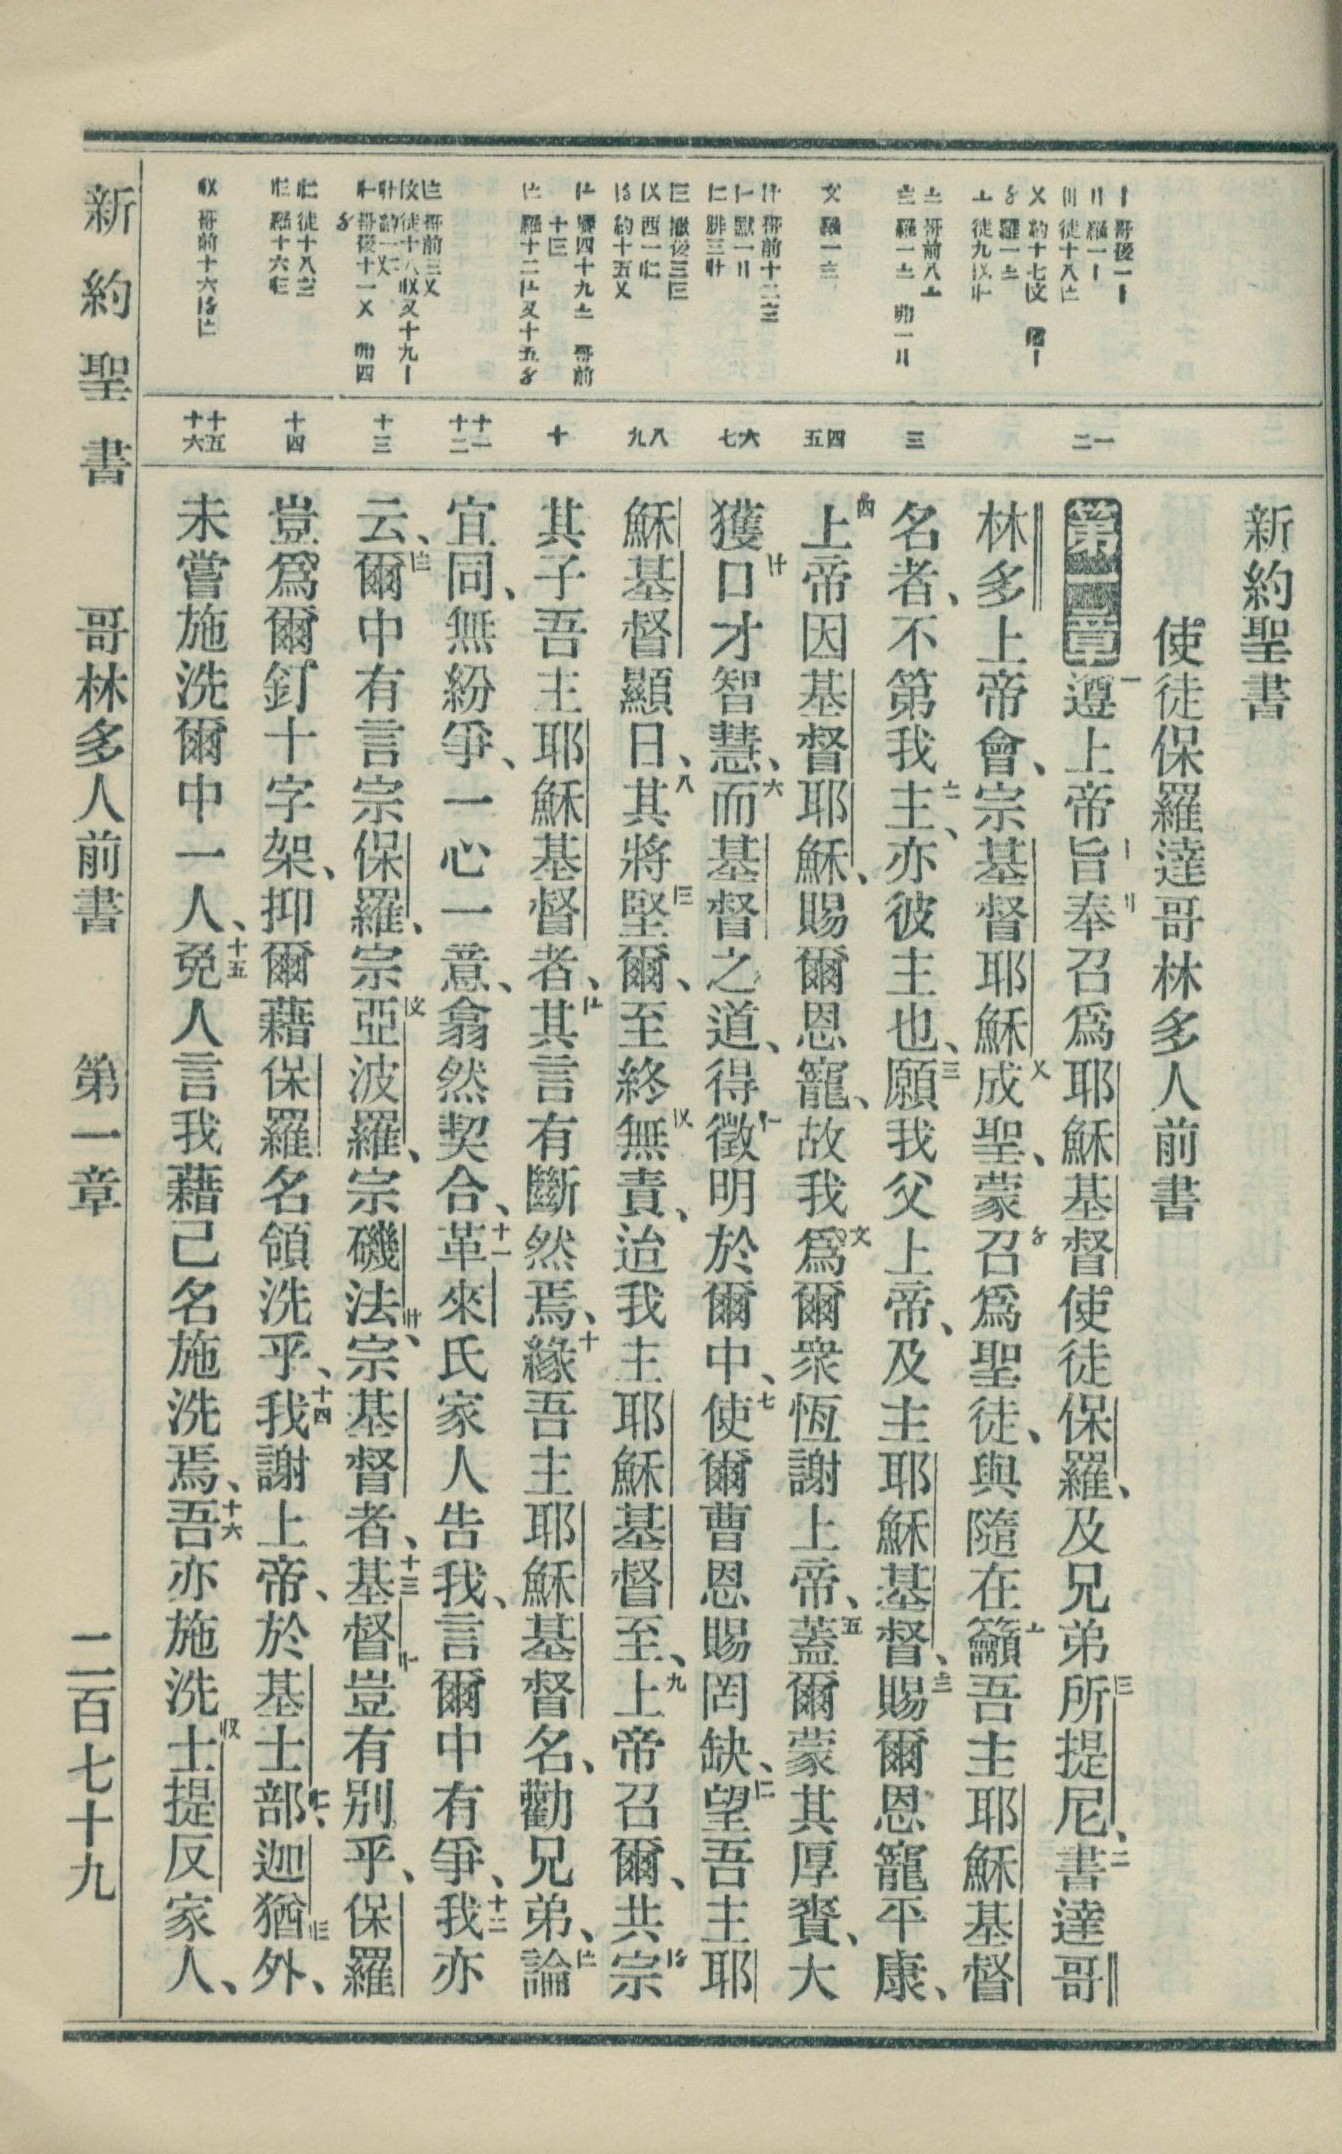 新約聖書
使徒保羅達哥林多人前書
第一章 一遵上帝旨奉召爲耶穌基督使徒保羅、及兄弟所提尼、二書達哥
林多上帝會、宗基督耶穌成聖、蒙召爲聖徒、與隨在籲吾主耶穌基督
名者、不第我主、亦彼主也、三願我父上帝、及主耶穌基督、賜爾恩寵平康、
四上帝因基督耶穌、賜爾恩寵、故我爲爾衆恆謝上帝、五蓋爾蒙其厚賚、大
獲口才智慧、六而基督之道、得徵明於爾中、七使爾曹恩賜罔缺、望吾主耶
穌基督顯日、八其將堅爾、至終無責、迨我主耶穌基督至、九上帝召爾、共宗
其子吾主耶穌基督者、其言有斷然焉、十緣吾主耶穌基督名、勸兄弟、論
宜同、無紛爭、一心一意、翕然契合、十一革來氏家人告我、言爾中有爭、十二我亦
云、爾中有言宗保羅、宗亞波羅、宗磯法、宗基督者、十三基督豈有別乎、保羅
豈爲爾釘十字架、抑爾藉保羅名領洗乎、十四我謝上帝、於基士部、迦猶外、
未嘗施洗爾中一人、十五免人言我藉己名施洗焉、十六吾亦施洗士提反家人、
一二
三
四五
六七
八九
十
十一十二
十三
十四
十五十六
新約聖書 哥林多人前書 第一章 二百七十九